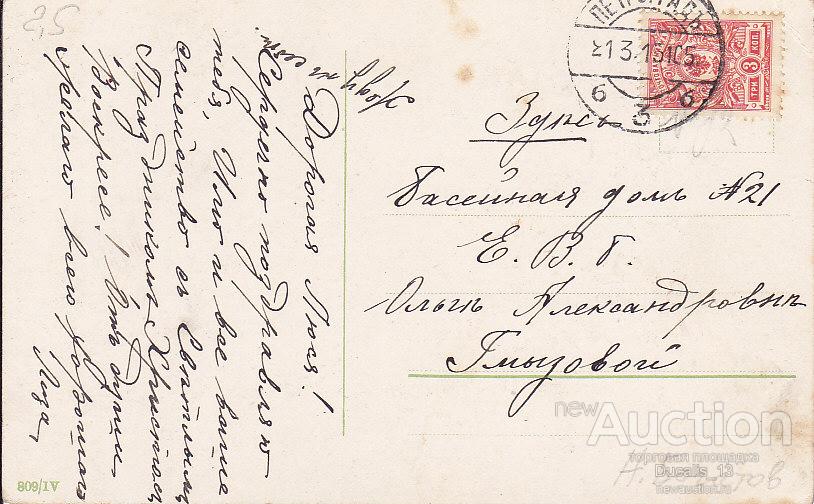 2,5
ПЕТРОГРАДЪ
21 3.15 10 5
6 3 6
3 КОП
ТРИ
Здѣсь
Бассейная домъ №21
Е. В. Б.
Ольгѣ Александровнѣ
Гмызовой
Дорогая Люся!
Сердечно поздравляю
тебя, Илю и все ваше
семейство съ Свѣтлымъ
Праздникомъ Христосъ
Воскресе! Отъ души
желаю всего хорошаго
Лиза,
AI/608
newAuction
торговая площадка
Ducalis_13
newauction.ru